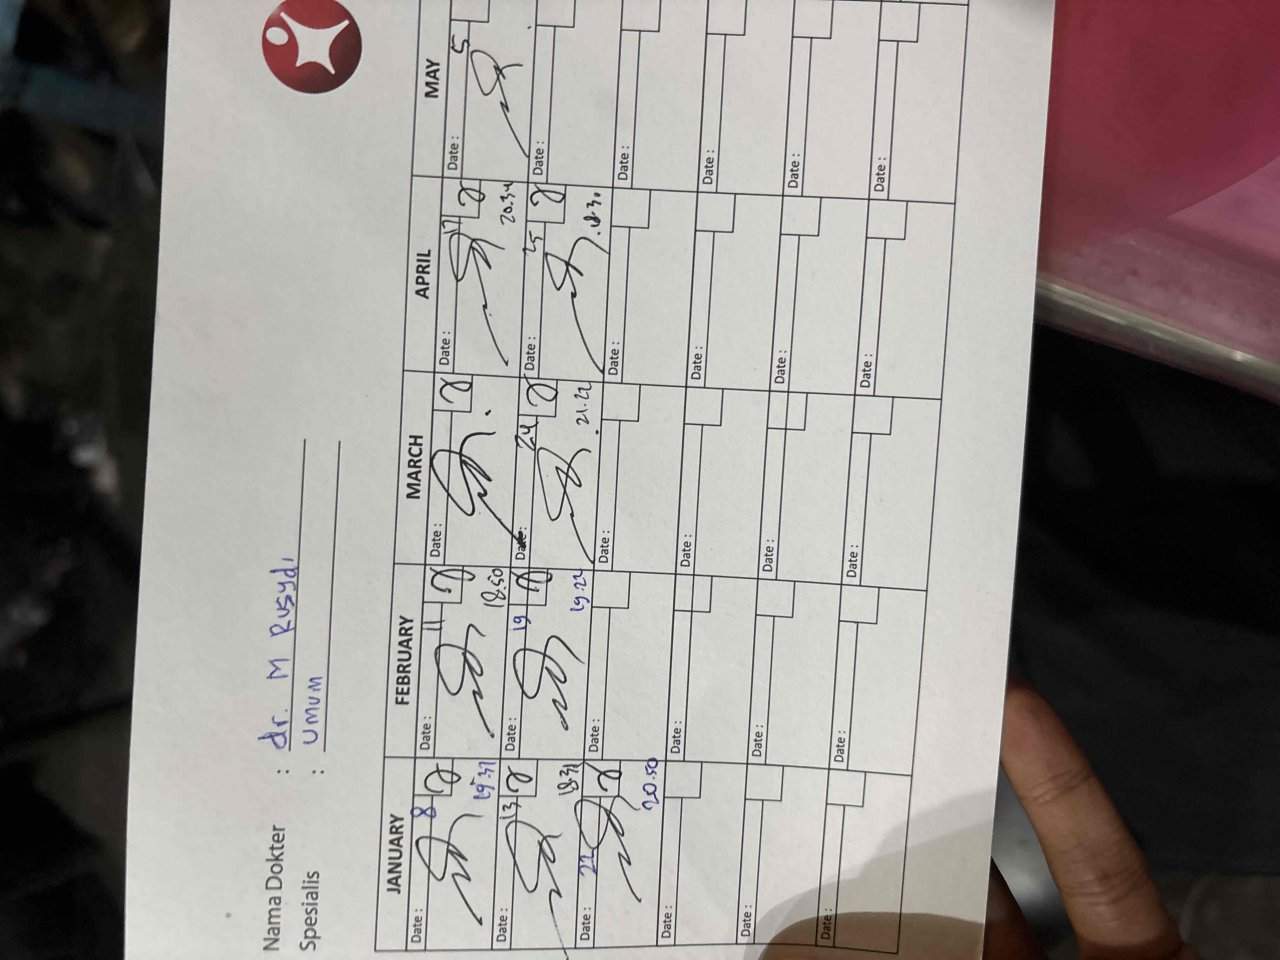 Nama Dokter : dr. M Rusydi
Spesialis : UMUM
JANUARY FEBRUARY MARCH APRIL MAY
Date : 8 Date : 11 Date : Date : 17 Date : 5
19.37 18.50 20.34
Date : 13 Date : 19 Date : 24 Date : 25 Date :
18.31 19.22 21.22 18.30
Date : 22 Date : Date : Date : Date :
20.50
Date : Date : Date : Date : Date :
Date : Date : Date : Date : Date :
Date : Date : Date : Date : Date :